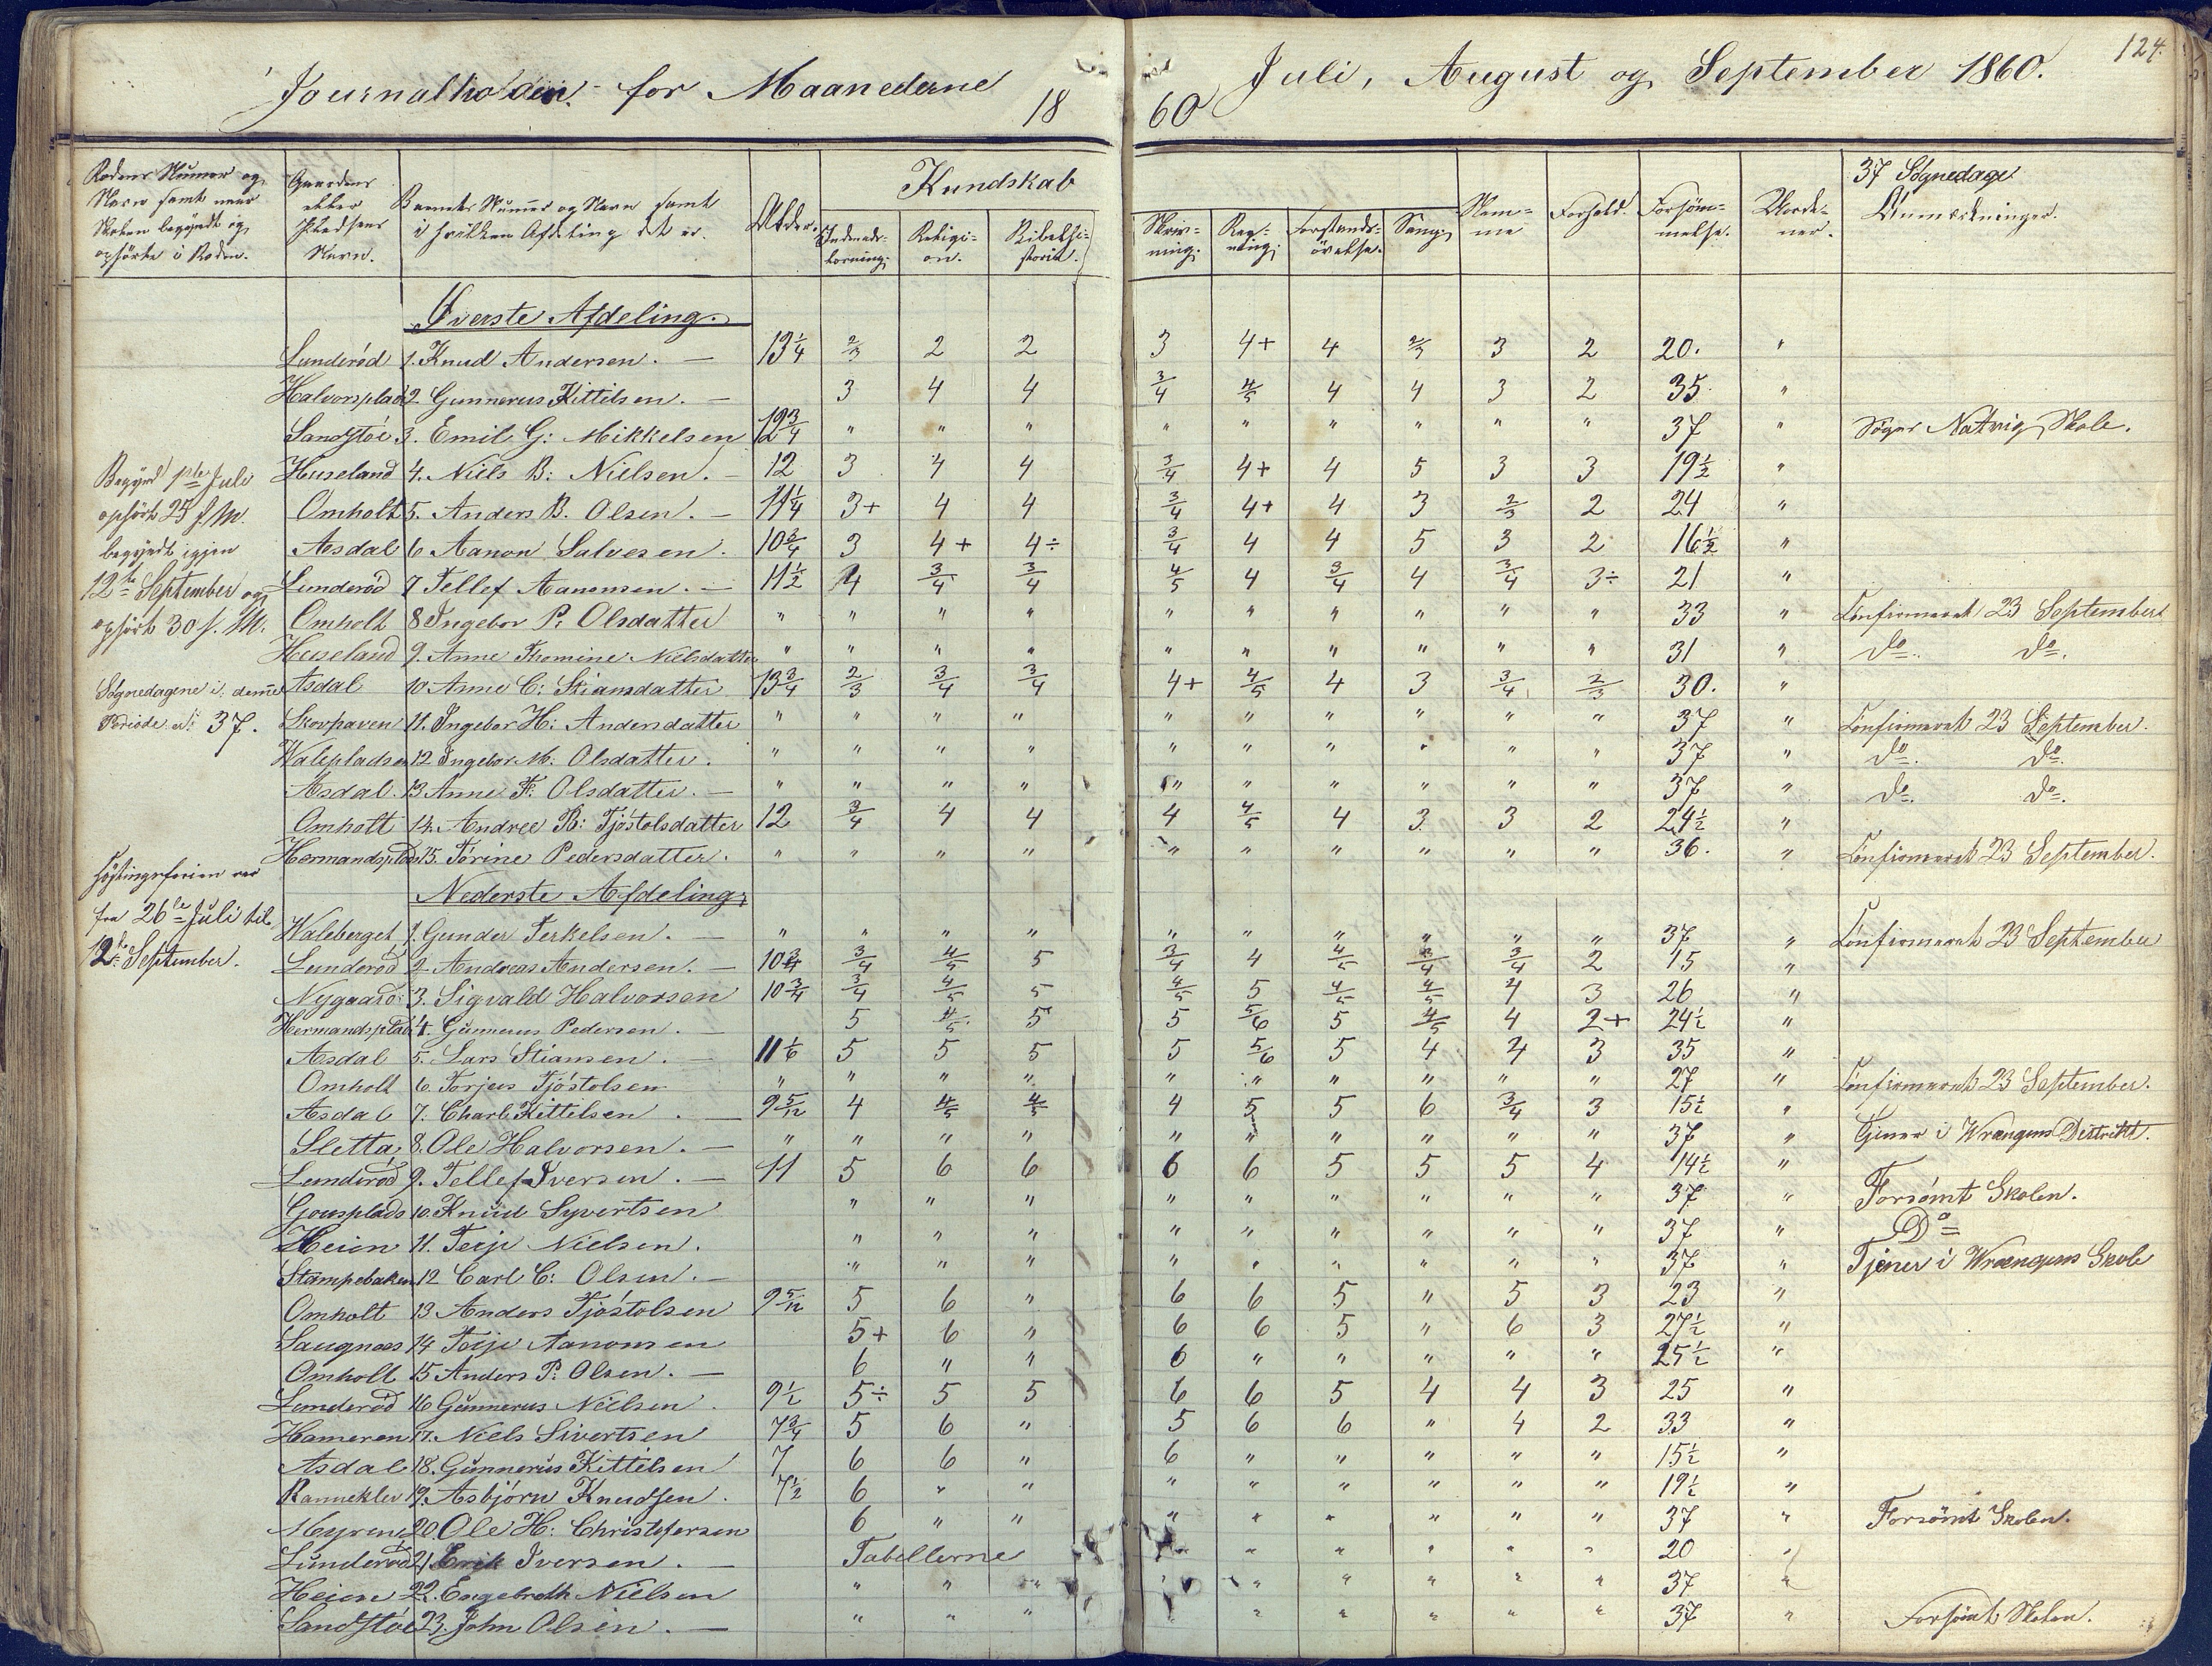 124.
Journalholden for Maanederne 1860 Juli, August og September 1860.
Rodens Numer og Navn samt naar Skolen begyndt og ophørte i Roden.
Gaardens eller Pladsens Navn.
Barnets Numer og Navn samt i hvilken Afdeling det er.
Alder.
Kundskab
Indenadslæsning.
Religion.
Bibelhistorie.
Skrivning.
Regning.
Forstandsøvelse.
Sang.
Nemme
Forhold.
Forsømmelse.
37 Søgnedage
Anmærkninger.
Begynd 1ste Juli
ophørt 25 s. M.
begyndt igjen
12te September og
ophørt 30 s. M.
Søgnedagene i denne
Periode er 37.
Høstingsferien var
fra 26de Juli til
12te September.
Øverste Afdeling.
Lunderød 1. Knud Andersen. — 13 1/4 2/3 2 2 3 4+ 4 2/3 3 2 20. "
Halvorsplads 2. Gunnerus Kittilsen. — 3 4 4 3/4 4/5 4 4 3 2 35. "
Sandstøe 3. Emil G: Mikkelsen 12 3/4 " " " " " " " " " 37 " Søger Natvig Skole.
Huseland 4. Niels B: Nielsen. — 12 3 4 4 3/4 4+ 4 5 3 3 19 1/2 "
Omholt 5. Anders B. Olsen. — 11 1/4 3+ 4 4 3/4 4+ 4 3 2/3 2 24 "
Asdal 6 Aanon Salvesen. 10 3/4 3 4+ 4÷ 3/4 4 4 5 3 2 16 1/2 "
Lunderød 7 Tellef Aanonsen. — 11 1/2 4 3/4 3/4 4/5 4 3/4 4 3/4 3÷ 21 "
Omholt 8 Ingebor P. Olsdatter " " " " " " " " " " 33 " Confirmeret 23 September
Huseland 9. Anne Thomine Nielsdatter " " " " " " " " " " 31 " do. do.
Asdal 10 Anne C: Stiansdatter 13 3/4 2/3 3/4 3/4 4+ 4/5 4 3 3/4 2/3 30. "
Skovhaven 11. Ingebor H: Andersdatter " " " " " " " " " " 37 " Confirmeret 23 September.
Walepladsen 12. Ingebor M: Olsdatter. " " " " " " " " " " 37 " do. do.
Asdal. 13 Anne F. Olsdatter. — " " " " " " " " " " 37 " do. do.
Omholt 14. Andree B: Tjøstolsdatter 12 3/4 4 4 4 4/5 4 3 3 2 24 1/2 "
Hermandsplads 15. Tørine Pedersdatter. " " " " " " " " " " 36. " Confirmeret 23 September.
Nederste Afdeling
Waleberget 1. Gunder Terkelsen. — " " " " " " " " " " 37 " Confirmeret 23 September
Lunderød 2 Andreas Andersen. — 10 3/4 3/4 4/5 5 3/4 4 4/5 3/4 3/4 2 15 "
Nygaard 3. Sigvald Halvorsen 10 3/4 3/4 4/5 5 4/5 5 4/5 4/5 4 3 26 "
Hermandsplads 4. Gunnerus Pedersen. — 5 4/5 5 5 5/6 5 4/5 4 2+ 24 1/2 "
Asdal 5. Lars Stiansen. — 11 1/6 5 5 5 5 5/6 5 4 4 3 35 "
Omholt 6. Torjus Tjøstolsen " " " " " " " " " " 27 " Confirmeret 23 September.
Asdal 7. Charl Kittilsen. — 9 5/12 4 4/5 4/5 4 5 5 6 3/4 3 15 1/2 "
Sletta 8. Ole Halvorsen. — " " " " " " " " " " 37 " Tjener i Wrængens Distrikt.
Lunderød 9. Tellef Iversen. — 11 5 6 6 6 6 5 5 5 4 14 1/2 "
10. Knud Syvertsen " " " " " " " " " 37 " Forsømt Skolen.
Heien 11. Terje Nielsen. " " " " " " " " " 37 " Do
Stampebaken 12 Carl C: Olsen. — " " " " " " " " " 37 " Tjener i Wrængens Skole
Omholt 13 Anders Tjøstolsen 9 5/12 5 6 " 6 6 5 " 5 3 23 "
Saugnæs 14 Terje Aanonsen 5+ 6 " 6 6 5 " 6 3 27 1/2 "
Omholt 15 Anders P. Olsen. — 6 " " 6 " " " " " 25 1/2 "
Lunderød 16 Gunnerus Nielsen. 9 1/2 5÷ 5 5 6 6 5 4 4 3 25 "
Hameren 17. Niels Sivertsen 7 3/4 5 6 " 5 6 6 " 4 2 33 "
Asdal 18. Gunnerus Kittilsen 7 6 6 " 6 " " " " " 15 1/2 "
Ranneklev 19. Asbjørn Knudsen. 7 1/2 6 " " " " " " " " 19 1/2 "
Myrene 20. Ole H: Christofersen 6 " " " " " " " " 37 " Forsømt Skolen.
Lunderød 21 Erik Iversen. — Tabellerne " " " " " 20 "
Heien 22. Engebreth Nielsen " " " " " " " " " 37 "
Sandstøe 23. John Olsen. — " " " " " " " " " 37 " Forsømt Skolen.